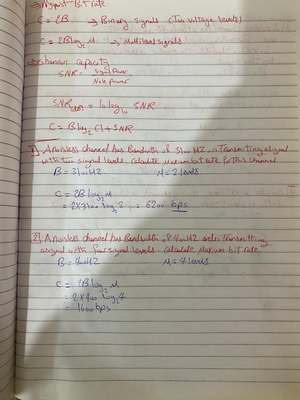 → Nyquist Bit rate
C = 2B → Binary signals (Two voltage levels)
C = 2B log₂ M → Multilevel signals
→ Shannon Capacity
SNR = Signal Power
Noise Power
SNR = 10 log₁₀ SNR
C = B log₂ (1 + SNR
1 A noiseless channel has Bandwidth of 3100 HZ is Transmitting a signal
with two signal levels. Calculate Maximum bit rate for this channel
B = 3100 HZ M = 2 levels
C = 2B log₂ M
= 2 × 3100 log₂ 2 = 6200 bps
2 A noiseless channel has Bandwidth of 400 HZ and is Transmitting
a signal with four signal levels. Calculate Maximum bit rate
B = 400 HZ M = 4 levels
C = 2B log₂ M
= 2 × 400 log₂ 4
= 1600 bps